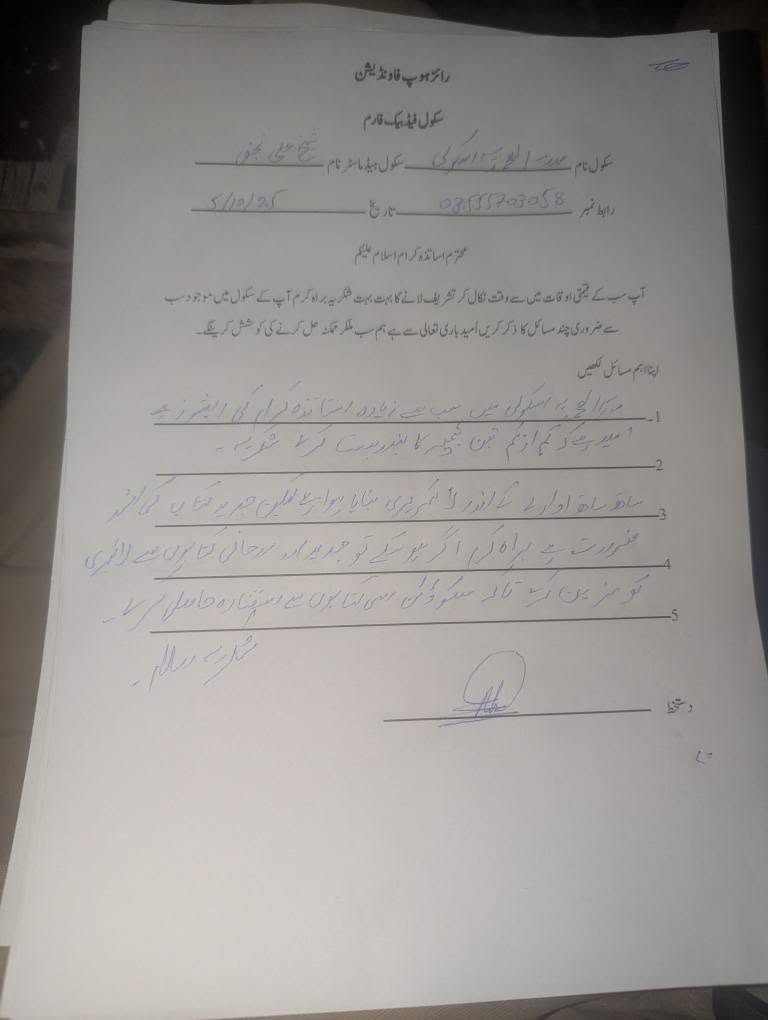 رائز ہوپ فاونڈیشن
سکول فیڈبیک فارم
سکول نام مدرسہ اسکولی سکول ہیڈ ماسٹر نام شیخ علی نجفی
رابطہ نمبر 03555703058 تاریخ 5/10/25
محترم اساتذہ کرام اسلام علیکم
آپ سب کے قیمتی اوقات میں سے وقت نکال کر تشریف لانے کا بہت بہت شکریہ براہ کرم آپ کے سکول میں موجود سب
سے ضروری چند مسائل کا ذکر کریں اُمید باری تعالی سے ہے ہم سب ملکر ممکنہ حل کرنے کی کوشش کرینگے۔
اپنا اہم مسائل لکھیں
1- اسکولی میں سب سے زیادہ اساتذہ کرام کی ہے
2 امید ہے کہ کم از کم تین ٹیچر کا بندوبست کرے شکریہ۔
3 ساتھ ساتھ ادارے کے اندر لائبریری بنایا ہوا ہے لیکن جدید کتاب کی اشد
4 ضرورت ہے براہ کرم اگر ہو سکے تو جدید اور کتابوں سے لائبریری
5 کو مزین کرے تاکہ کتابوں سے استفادہ حاصل کرے۔
شکریہ والسلام۔
دستخط